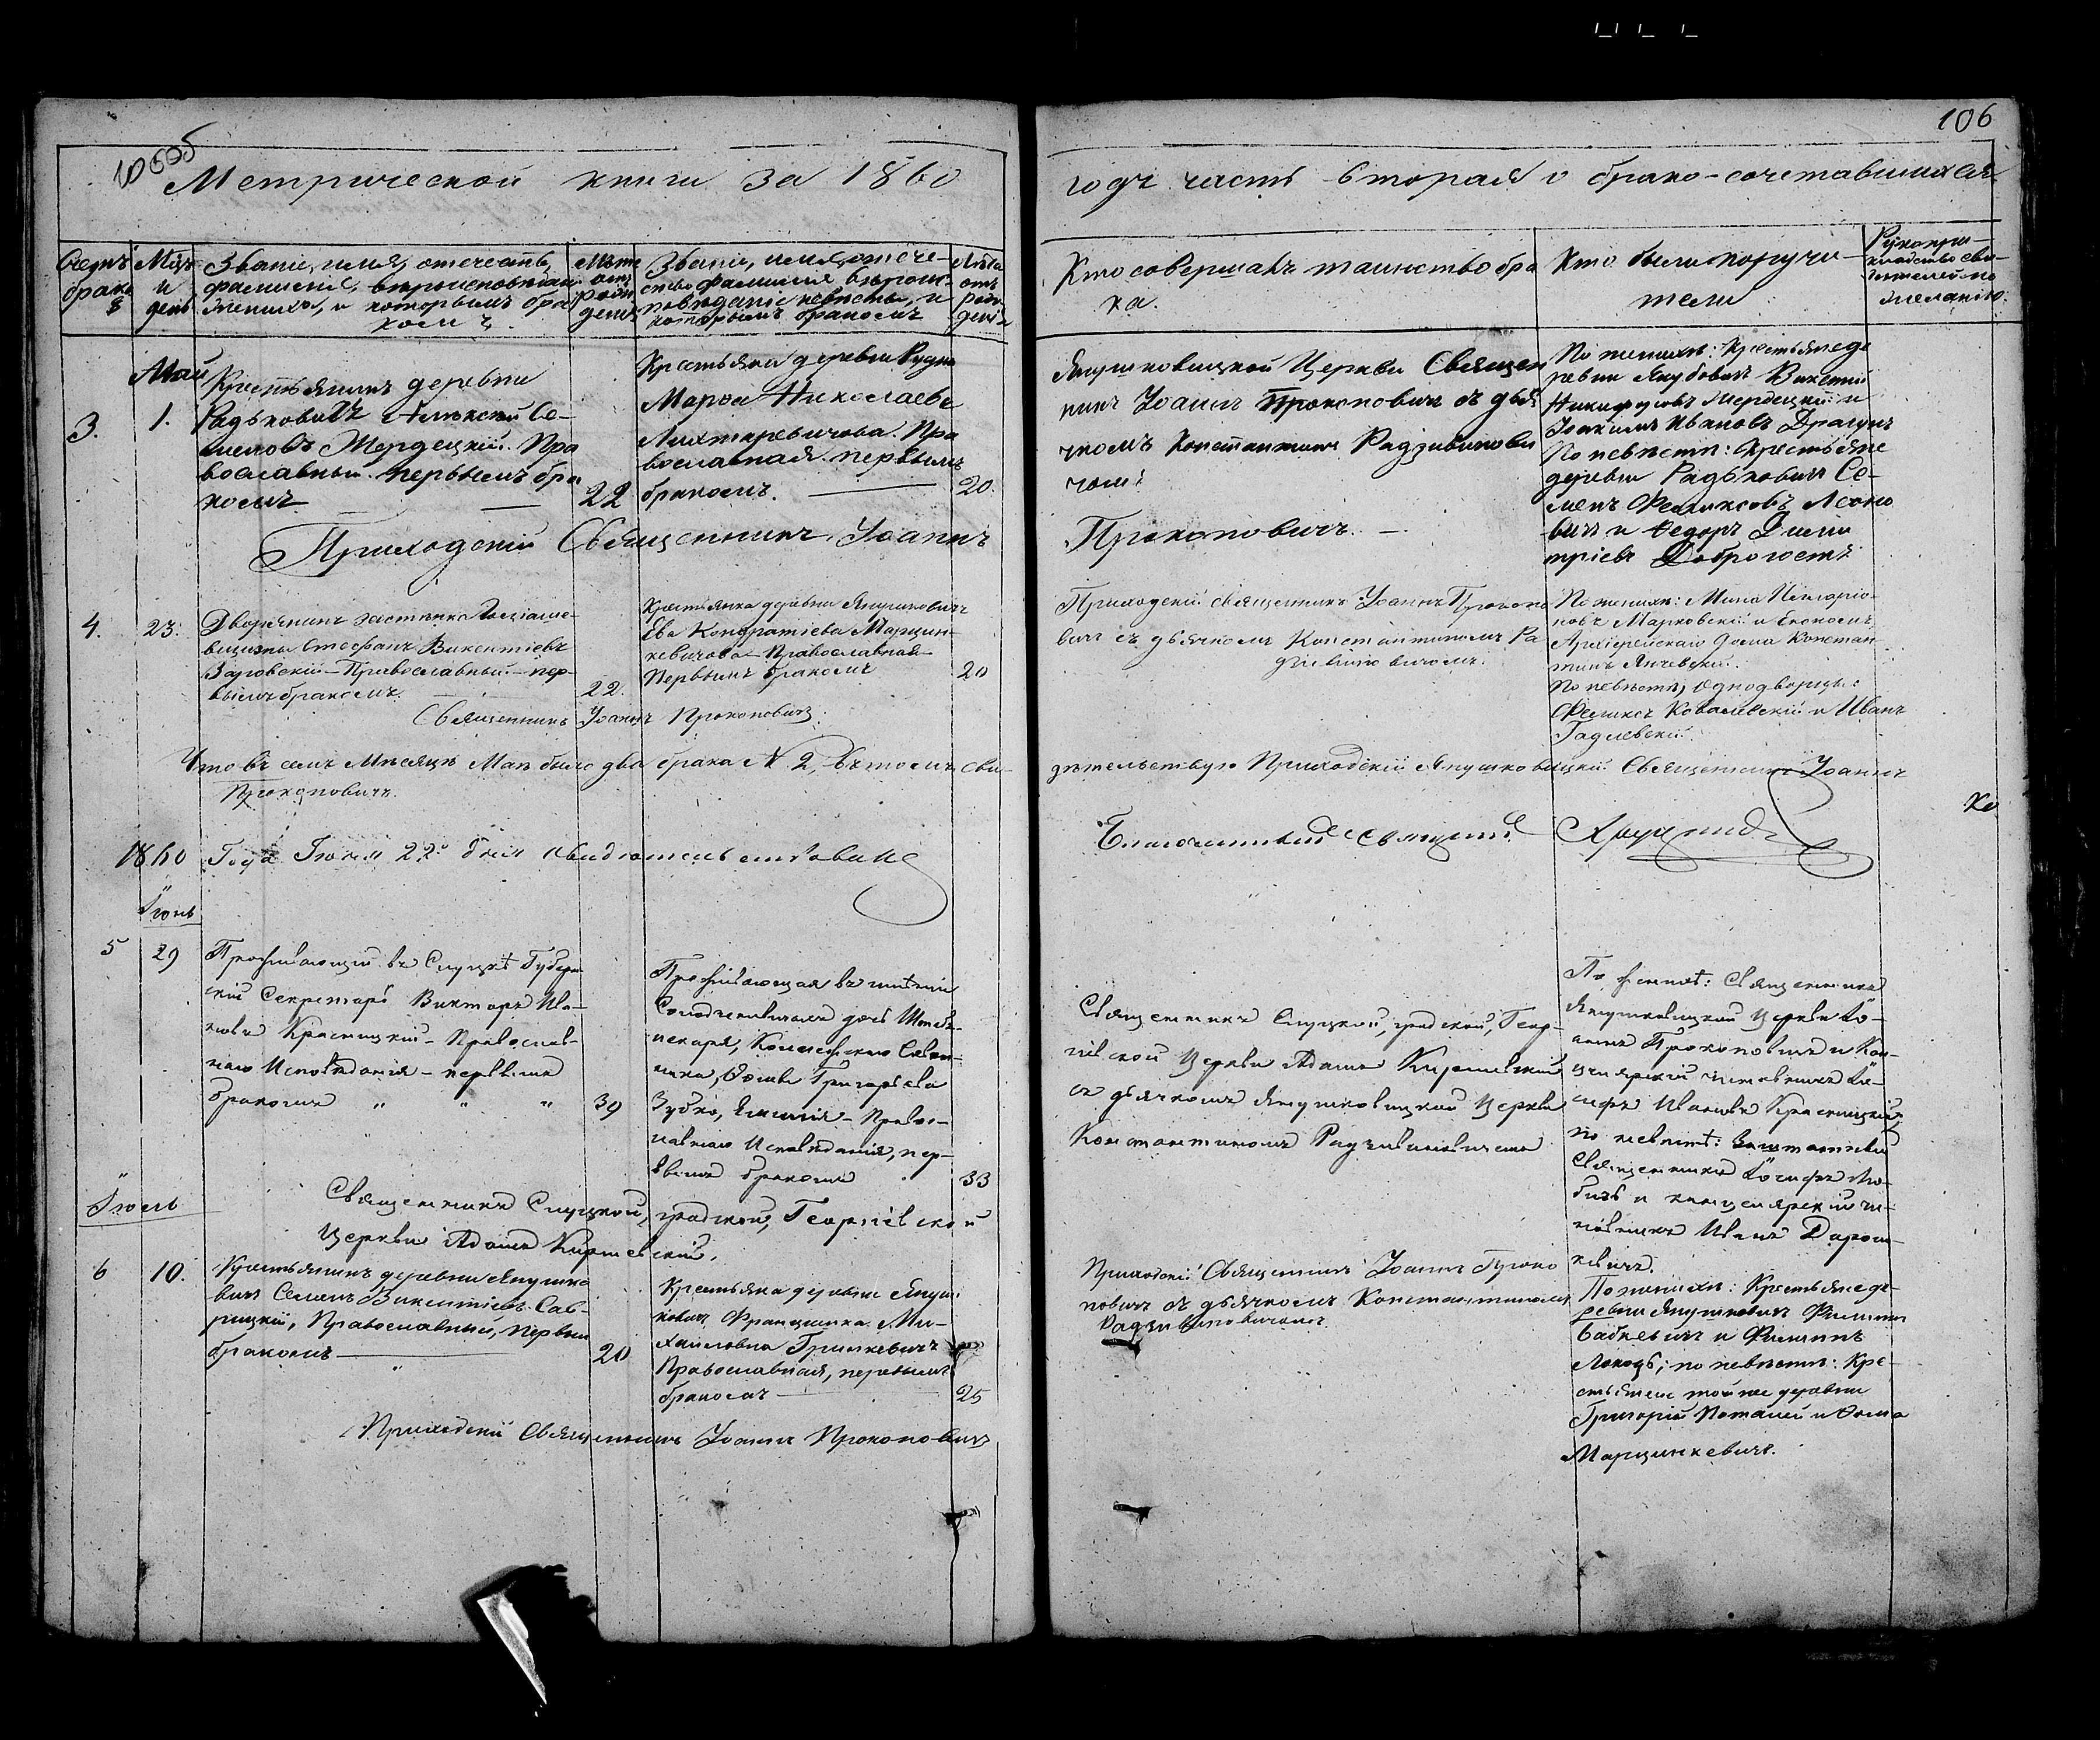 106
Метрической книги за 1860
годъ часть вторая о брако-сочетавшихся.
Счетъ
брако
в
Мѣц
и
день
Званіе, имя, отечество,
фамилія, вѣроисповѣданіе
жениха, и которымъ бра
комъ
Лѣта
отъ
рожденія
Званіе, имя, отече-
ство фамилія вѣроис-
повѣданіе невѣсты, и
которымъ бракомъ
Лѣта
отъ
рож
денія
Кто совершалъ таинство бра
ка.
Кто были поручи-
тели
Рукопри-
кладство сви-
дѣтелей по
желанію.
Май
3.
1.
Крестьянинъ деревни
Радьковичъ Алексѣй Се-
меновъ Жердецкій. Пра
вославный. первымъ бра
комъ
22
Крестьянка деревни Рудни
Марья Николаева
Лихтаревичова. Пра
вославная. первымъ
бракомъ.
20.
Янушковицкой Церкви Священ
никъ Іоаннъ Прокоповичъ съ дья
чкомъ Константиномъ Радзивинови
чомъ
По женихѣ: Крестьяне де
ревни Янубовичъ Викентій
Никифоровъ Жердецкій и
Іоакимъ Ивановъ Драгунъ
По невѣстѣ: Крестьяне
деревни Радьковичъ Се-
менъ Феликсовъ Леоно
вичъ и Федоръ Дими
тріевъ Доброгостъ
Приходскій Священникъ Іоаннъ
Прокоповичъ.
4.
23.
Дворянинъ застѣнка
вщизны Стефанъ Викентіевъ
Заговскій - Православный - пер-
вымъ бракомъ.
22.
Крестьянка деревни Янушковичъ
Ева Кондратіева Марцин-
кевичова - Православная -
Первымъ бракомъ
20
Приходскій священникъ Іоаннъ Прокопо
вичъ съ дьячкомъ Константиномъ Ра
дзивиновичомъ.
По женихѣ: Мина
новъ Марковскій и Економъ
Архіерейскаго дома Констан
тинъ Янчевскій.
По невѣстѣ, Однодворцы:
Феликсъ Ковалевскій и Иванъ
Гадлевскій.
Священникъ Іоаннъ Прокоповичъ.
Что въ семъ Мѣсяцѣ Маѣ было два брака № 2, въ томъ сви-
дѣтельствую Приходскій Янушковицкій Священникъ Іоаннъ
Прокоповичъ.
1860 Года Іюня 22го дня свидѣтельствовалъ
Благочинный Священникъ
Іюнь
5
29
Проживающій въ Слуцкѣ Губерн
скій Секретарь Викторъ Ива-
новъ Красницкій - Православ-
наго Исповѣданія - первымъ
бракомъ " " "
39
Проживающая въ имѣніи
дочь Штабъ-
лекаря, Коллежскаго Совѣт-
ника, Григорьева
Зубко, Емилія - Право-
славнаго Исповѣданія, пер-
вымъ бракомъ
33
Священникъ Слуцкой, градской, Геор-
гіевской Церкви Адамъ
съ дьячкомъ Янушковицкой Церкви
Константиномъ Радзивиновичемъ
По женихѣ: Священникъ
Янушковицкой Церкви Іо-
аннъ Прокоповичъ и Кан-
целярскій чиновникъ Іо-
сифъ Ивановъ Красницкій,
по невѣстѣ: Заштатный
Священникъ Іосифъ Ло-
и канцелярскій чи-
новникъ Иванъ Дорош-
кевичъ.
Священникъ Слуцкой, градской, Георгіевской
Церкви Адамъ
Іюль
6
10.
Крестьянинъ деревни Янушко
вичъ Семенъ Викентіевъ Сав-
рицкій, Православный, первымъ
бракомъ
20
Крестьянка деревни Януш
ковичъ Францишка Ми-
хайловна Гринкевичъ
Православная, первымъ
бракомъ
25
Приходскій Священникъ Іоаннъ Проко
повичъ съ дьячкомъ Константиномъ
Радзивиновичомъ
По женихѣ: Крестьяне де-
ревни Янушковичъ Филиппъ
Бабкевичъ и Филиппъ
по невѣстѣ: Кре-
стьяне той же деревни
Григорій и Фома
Марцинкевичъ.
Приходскій Священникъ Іоаннъ Прокоповичъ